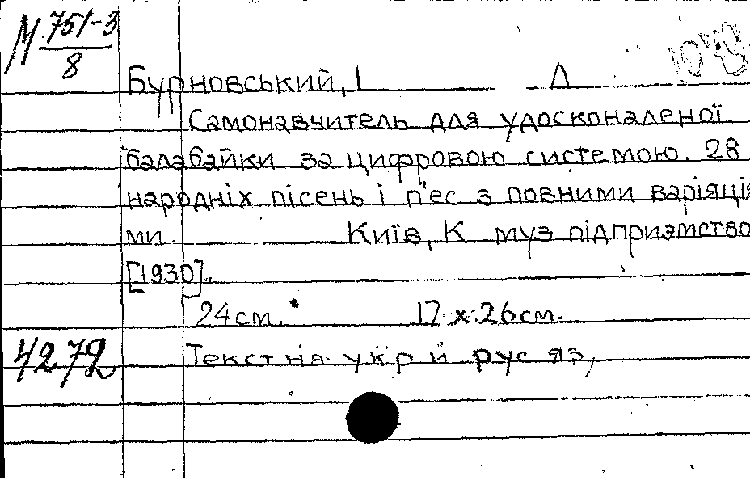 М 751-3
8
Бурновський, І Д
Самонавчитель для удосконаленої
балабайки за цифровою системою. 28
народніх пісень і п'єс з повними варіяція
ми Київ, К муз підприємство
[1930].
24 см. 17 х 26 см.
4272 Текст на укр й рус яз,